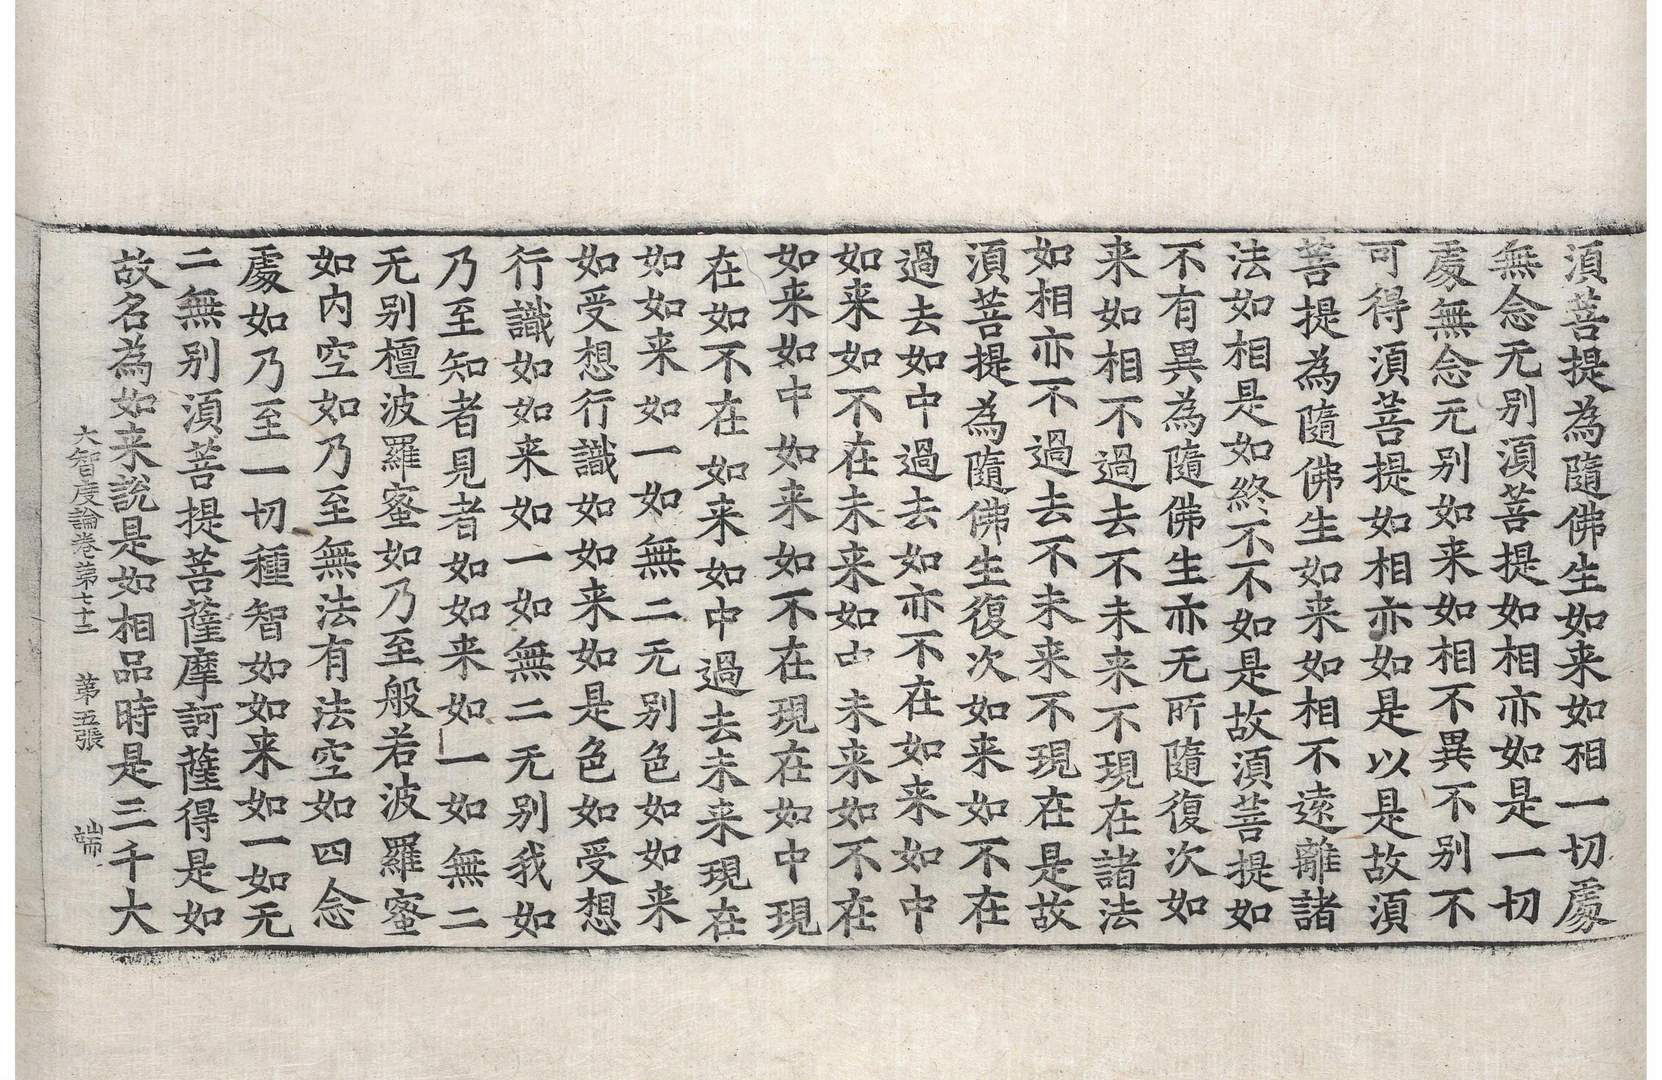 湏菩提為隨佛生如来如相一切處
無念无别湏菩提如相亦如是一切
處無念无别如来如相不異不别不
可得湏菩提如相亦如是以是故湏
菩提為隨佛生如来如相不遠離諸
法如相是如終不不如是故湏菩提如
不有異為隨佛生亦无所隨復次如
来如相不過去不未来不現在諸法
如相亦不過去不未来不現在是故
湏菩提為隨佛生復次如来如不在
過去如中過去如亦不在如来如中
如来如不在未来如中未来如不在
如来如中如来如不在現在如中現
在如不在如来如中過去未来現在
如如来如一如無二无别色如如来
如受想行識如如来如是色如受想
行識如如来如一如無二无别我如
乃至知者見者如如来如一如無二
无别檀波羅蜜如乃至般若波羅蜜
如内空如乃至無法有法空如四念
處如乃至一切種智如如来如一如无
二無别湏菩提菩薩摩訶薩得是如
故名為如来說是如相品時是三千大
大智度論卷第七十二 第五張 端